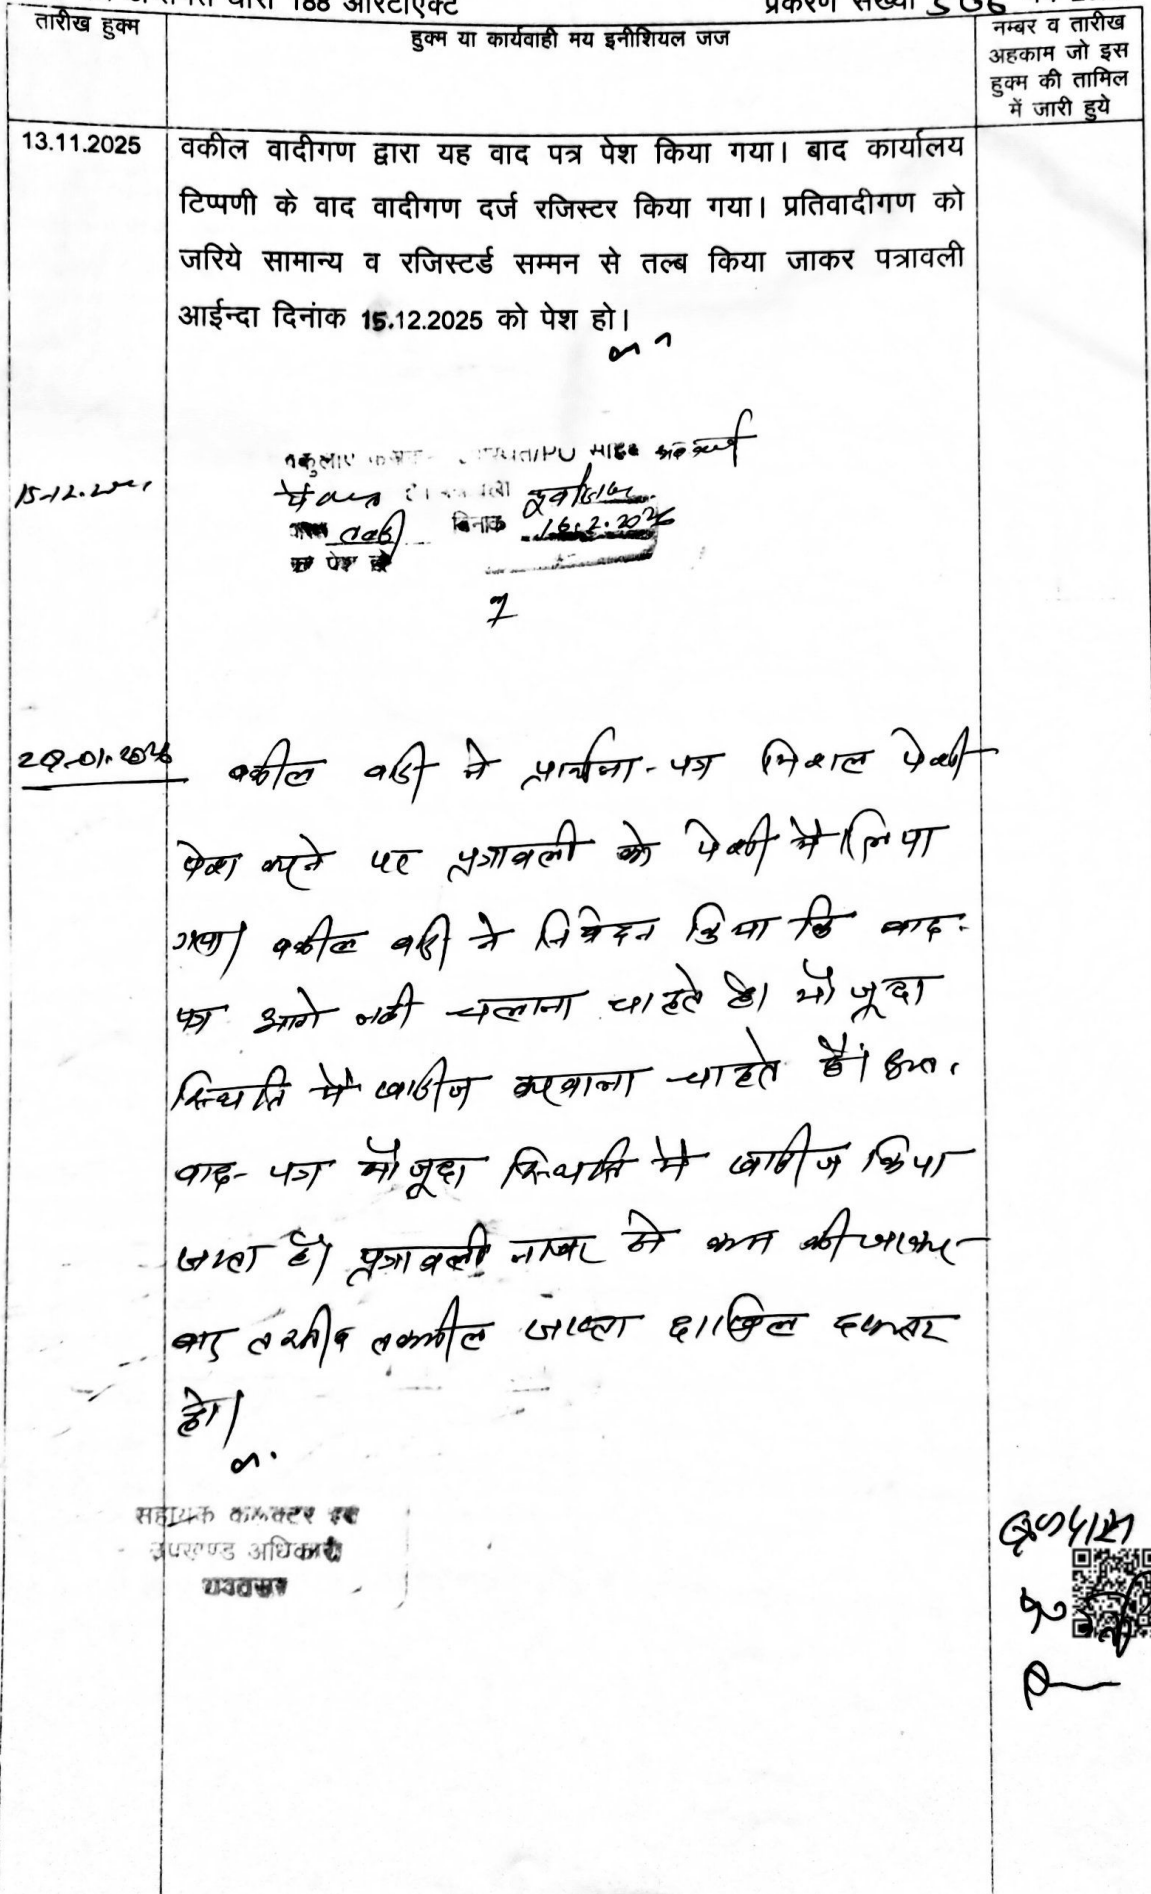 धारा 188 आरटीएक्ट प्रकरण संख्या
तारीख हुक्म
हुक्म या कार्यवाही मय इनीशियल जज
नम्बर व तारीख
अहकाम जो इस
हुक्म की तामिल
में जारी हुये
13.11.2025 वकील वादीगण द्वारा यह वाद पत्र पेश किया गया। बाद कार्यालय
टिप्पणी के वाद वादीगण दर्ज रजिस्टर किया गया। प्रतिवादीगण को
जरिये सामान्य व रजिस्टर्ड सम्मन से तल्ब किया जाकर पत्रावली
आईन्दा दिनांक 15.12.2025 को पेश हो।
दिनांक 16.2.2026
पेश हो
वकील वादी ने प्रार्थना-पत्र मिशल पेशी
पेश करने पर पत्रावली को पेशी में लिया
गया। वकील वादी ने निवेदन किया कि वाद-
पत्र आगे नही चलाना चाहते है। मौजूदा
स्थिति में खारीज करवाना चाहते हैं। अतः
वाद-पत्र मौजूदा स्थिति में खारीज किया
जाता है। पत्रावली नम्बर से कम की जाकर
बाद तकमील जाब्ता दाखिल दफ्तर
हो।
सहायक कलक्टर एवं
उपखण्ड अधिकारी